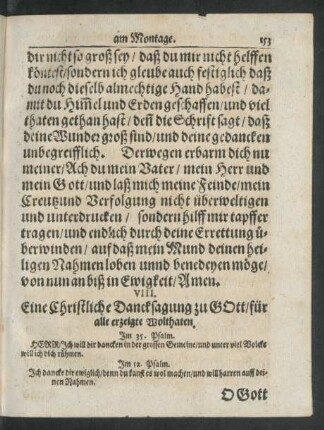 am Montage. 153
dir nicht so groß sey / daß du mir nicht helffen
köntest / sondern ich gleube auch festiglich daß
du noch dieselb almechtige Hand habest / da-
mit du Him̃el und Erden geschaffen / und viel
thaten gethan hast / den̄ die Schrifft sagt / daß
deine Wunder groß sind / und deine gedancken
unbegreifflich. Derwegen erbarm dich nu
meiner / Ach du mein Vater / mein Herr und
mein Gott / und laß mich meine Feinde / mein
Creutz und Verfolgung nicht überweltigen
und unterdrucken / sondern hilff mir tapffer
tragen / und endlich durch deine Errettung ü-
berwinden / auf daß mein Mund deinen hei-
ligen Nahmen loben unnd benedeyen möge /
von nun an biß in Ewigkeit / Amen.
VIII.
Eine Christliche Dancksagung zu GOtt / für
alle erzeigte Wolthaten.
Im 35. Psalm.
HERR / Ich will dir dancken in der grossen Gemeine / und unter viel Volcks
will ich dich rühmen.
Im 52. Psalm.
Ich dancke dir ewiglich / denn du kanst es wol machen / und will harren auff dei-
nen Nahmen.
O Gott